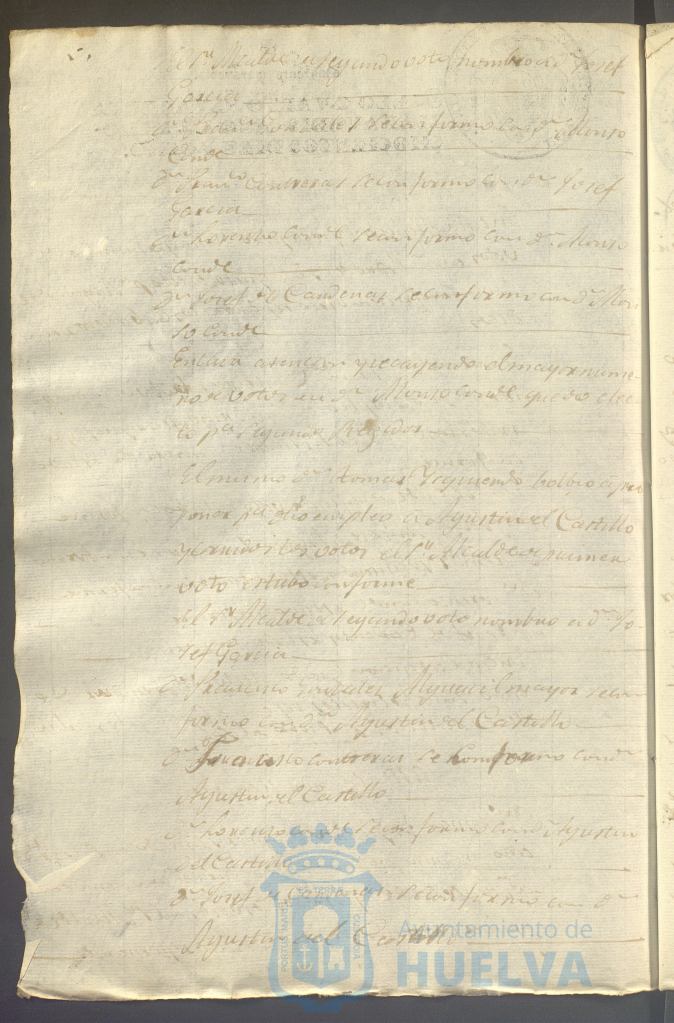 El Sr. Alcalde de segundo voto nombro a Dn. Josef
Garcia
Gonzales se conformo con Dn. Alonso
Conde
Dn. Franco. Contreras se conformo con Dn. Josef
Garcia
Dn. Lorenzo Conde se conformo con Dn. Alonso
Conde
Dn. Josef de Cardenas se conformo con Dn. Alon
so Conde
atencion y recayendo el mayor nume
ro de votos en Dn. Alonso Conde quedo elec
to pa. segundo Regidor
El mismo Dn. Tomas Yzquierdo bolbio a pro
poner pa. dho empleo a Agustin del Castillo
y votos el Sr. Alcalde de primer
voto estubo conforme
El Sr. Alcalde de segundo voto nombro a Dn. Jo
sef Garcia
Dn. Francisco Gonzales Alguacil mayor se con
formo con Dn. Agustin del Castillo
Dn. Francisco Contreras se conformo con Dn.
Agustin del Castillo
Dn. Lorenzo Conde se conformo con Agustin
del Castillo
Dn. Josef de Cardenas se conformo con Dn.
Agustin del Castillo
Ayuntamiento de
HUELVA